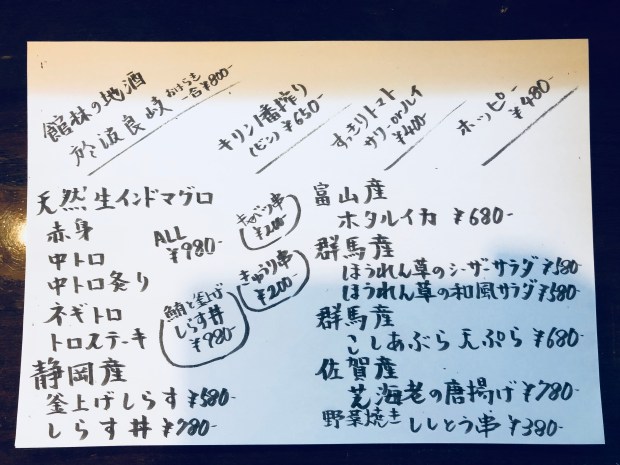 館林の地酒
於波良岐 おはらき
一合 ¥800-
キリン一番搾り
(ビン) ¥650-
すっきりトマト
サワーorハイ
¥400-
ホッピー
¥480-
天然生インドマグロ
赤身
中トロ
中トロ炙り
ネギトロ
トロステーキ
ALL
¥980-
静岡産
釜上げしらす ¥580-
しらす丼 ¥780-
キャベツ串
¥200-
きゅうり串
¥200-
鮪と釜上げ
しらす丼
¥980-
富山産
ホタルイカ ¥680-
群馬産
ほうれん草のシーザーサラダ ¥580-
ほうれん草の和風サラダ ¥580-
群馬産
こしあぶら天ぷら ¥680-
佐賀産
芝海老の唐揚げ ¥780-
野菜焼き ししとう串 ¥380-